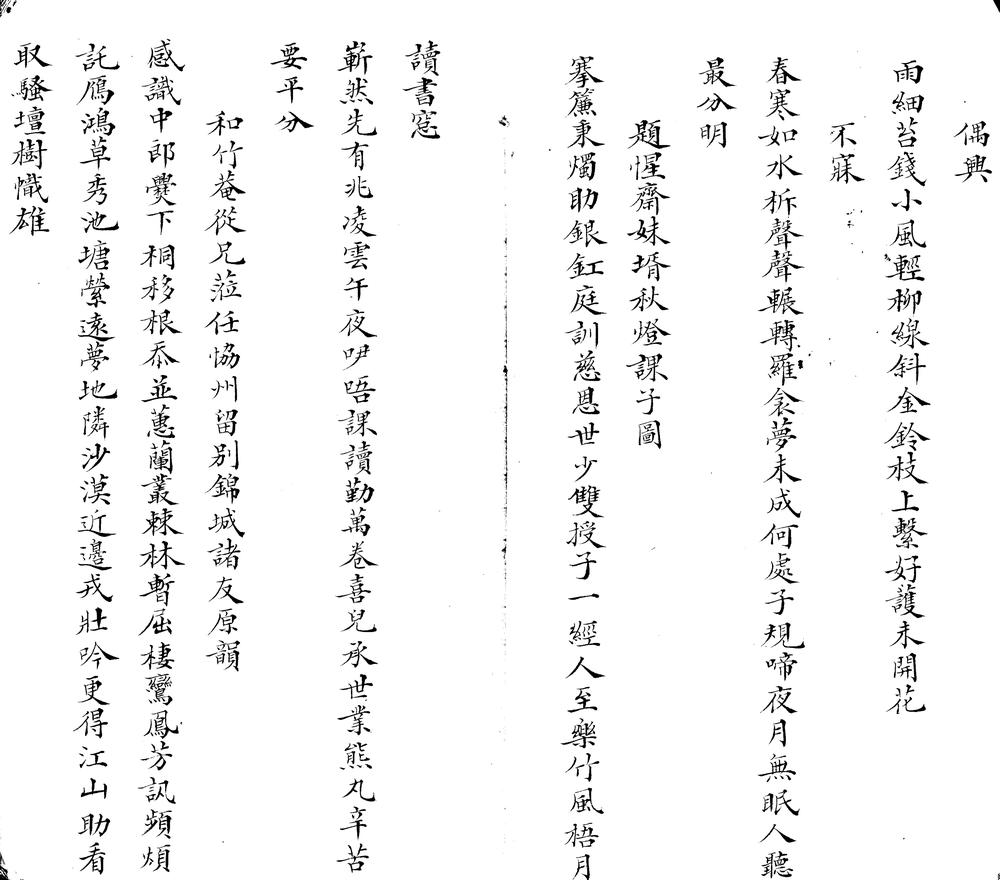 偶興
雨細苔錢小風輕柳線斜金鈴枝上繫好護未開花
不寐
春寒如水柝聲聲輾轉羅衾夢未成何處子規啼夜月無眠人聽
最分明
題惺齋妹壻秋燈課子圖
搴簾秉燭助銀釭庭訓慈恩世少雙授子一經人至樂竹風梧月
讀書窓
嶄然先有兆凌雲午夜吚唔課讀勤萬卷喜兒承世業熊丸辛苦
要平分
和竹菴從兄蒞任恊州留别錦城諸友原韻
感識中郎爨下桐移根忝並蕙蘭叢棘林暫屈棲鸞鳳芳訊頻煩
託鴈鴻草秀池塘縈遠夢地隣沙漠近邊戎壯吟更得江山助看
取騷壇樹幟雄